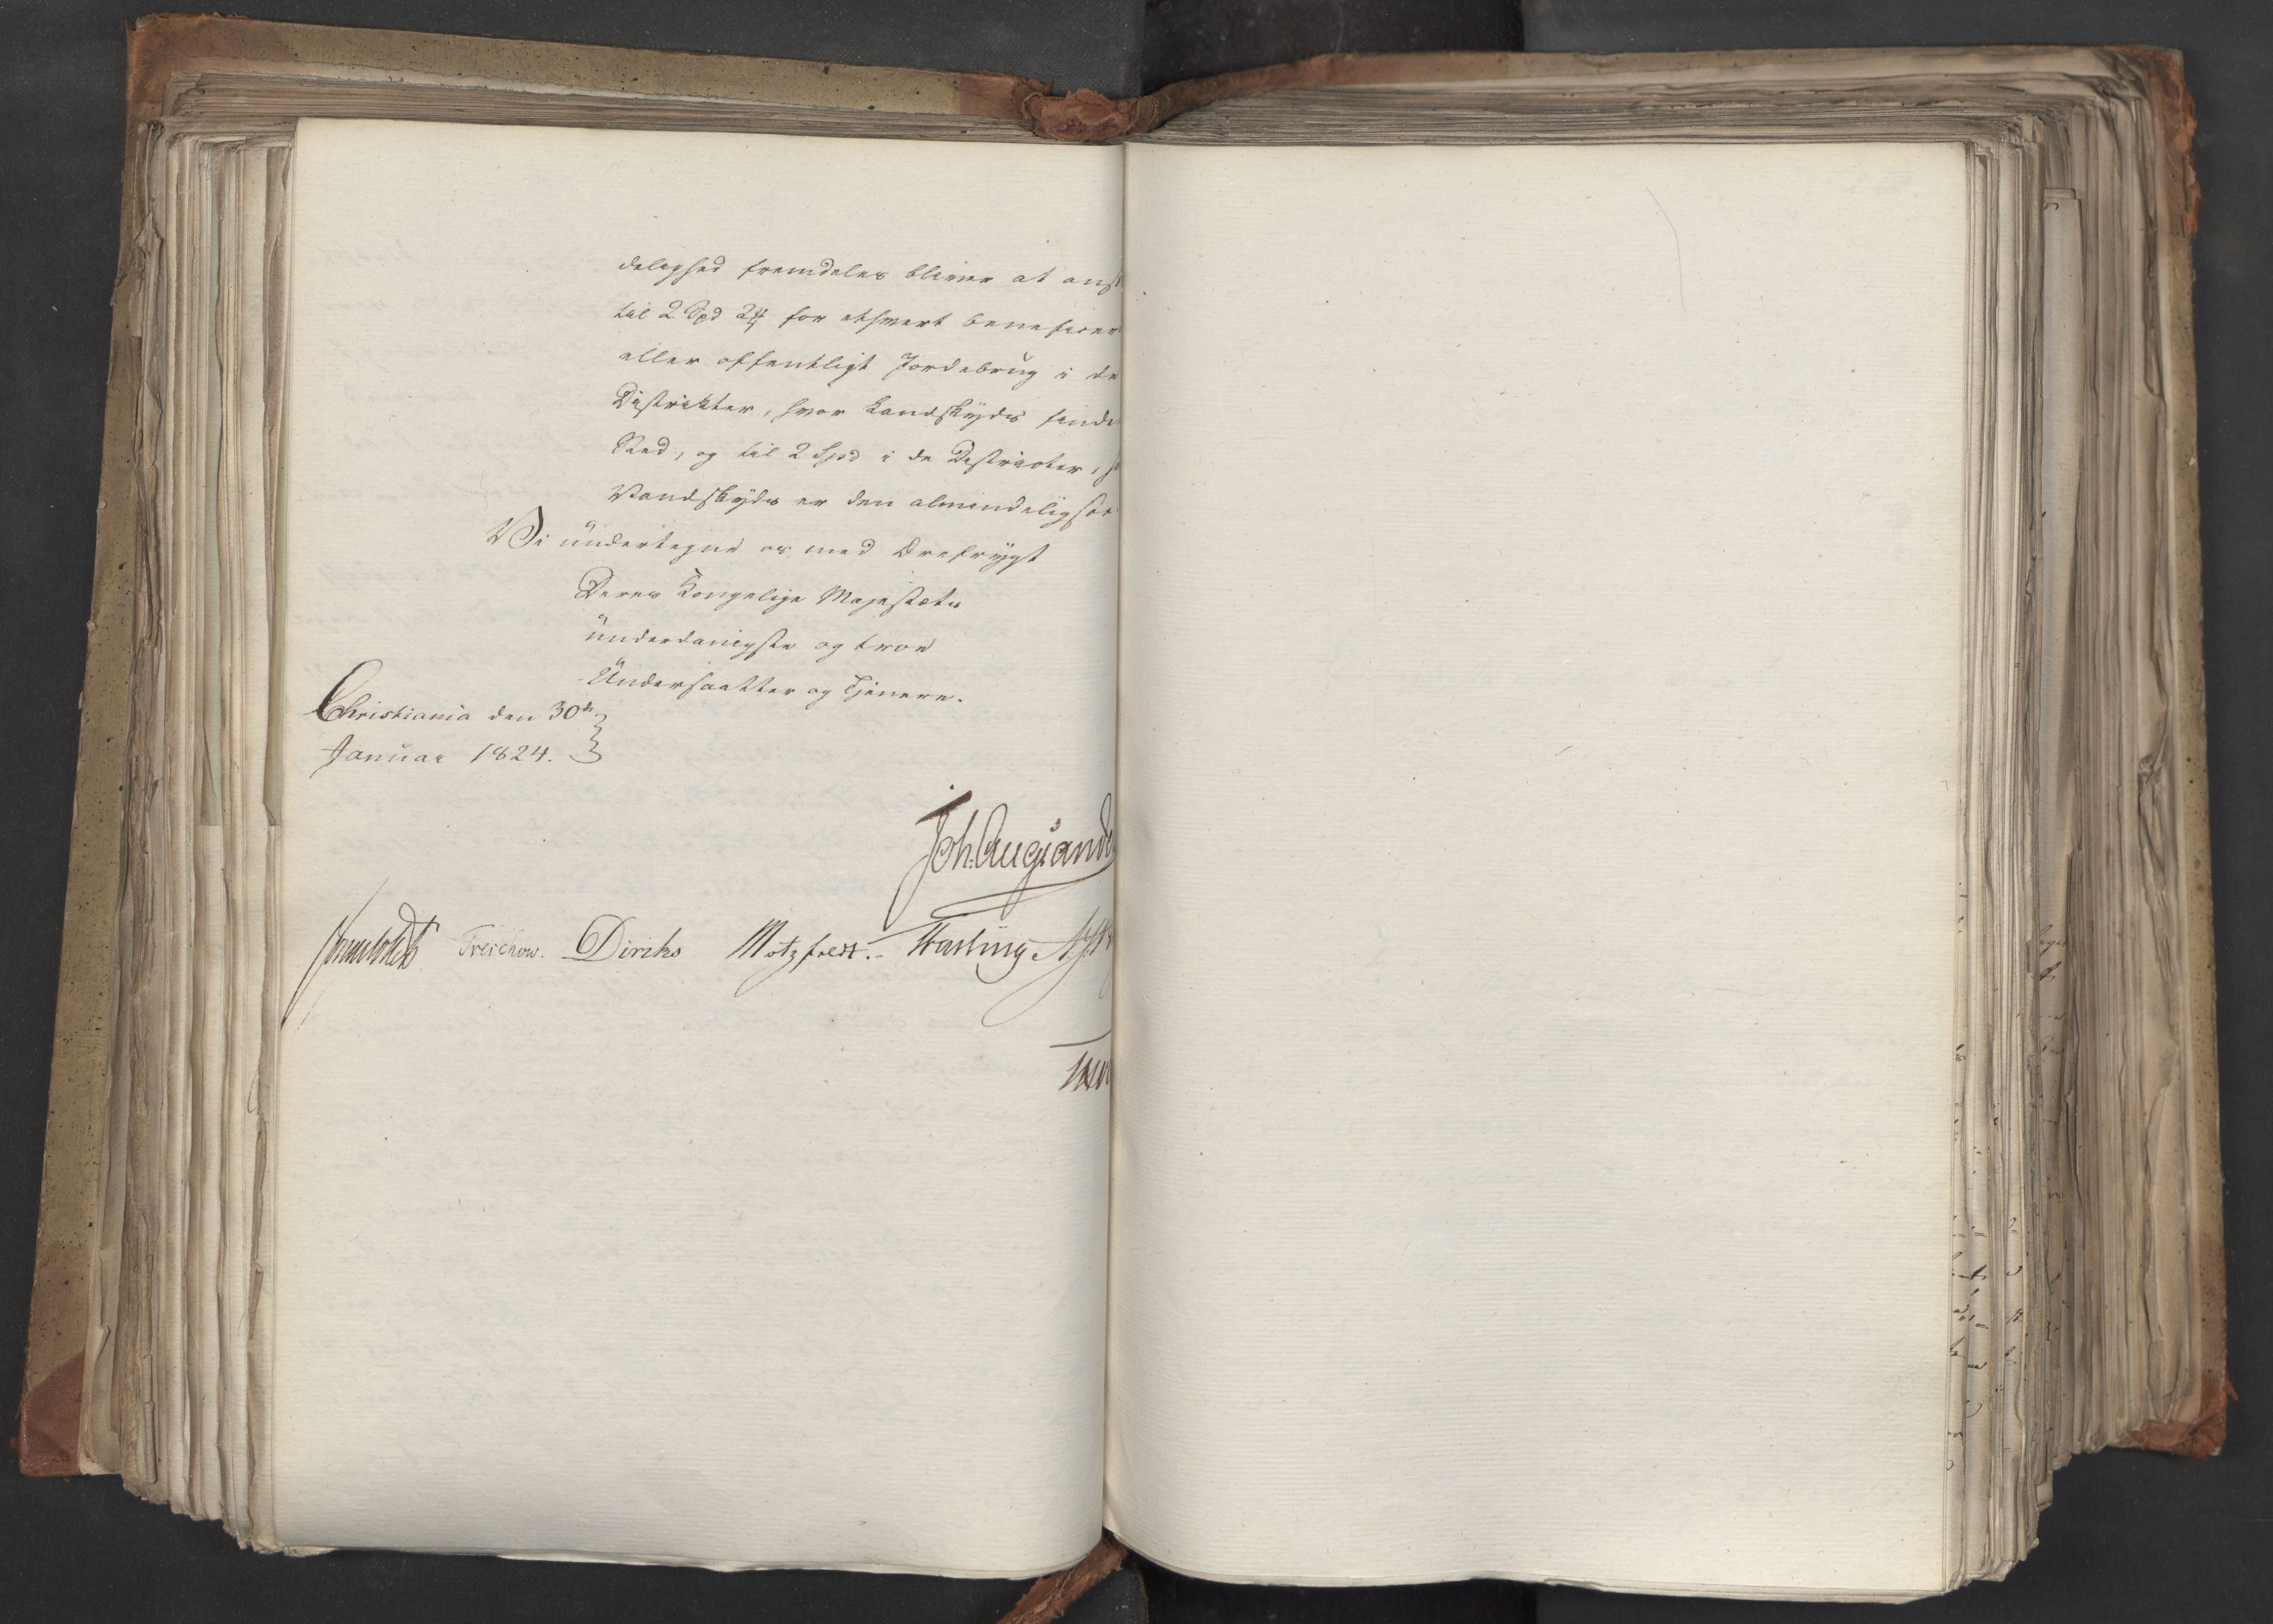 delighed fremdeles bliver at ans
til 2 Spd 24 for ethvert beneficer
eller offentligt Jordebrug i de
Districter, hvor Landskyds finde
Sted, og til 2 Spd i de Districter, h
Vandskyds er den almindeligste
Vi undertegne os med Ærefrygt
Deres Kongelige Majestæts
underdanigste og troe
Undersaatter og Tjenere.
Christiania den 30te
Januar 1824.
Joh. Aug: Sande
Sommerhielm Treschow. Diriks Motzfeldt. Fasting